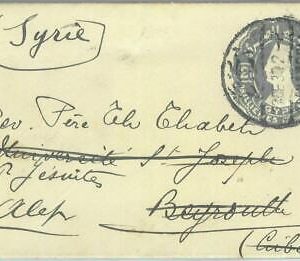 (Syrie
Rev. Père Ch. Chabeth
Université St Joseph
P. Jésuites
Alep
Beyrouth
(Liba